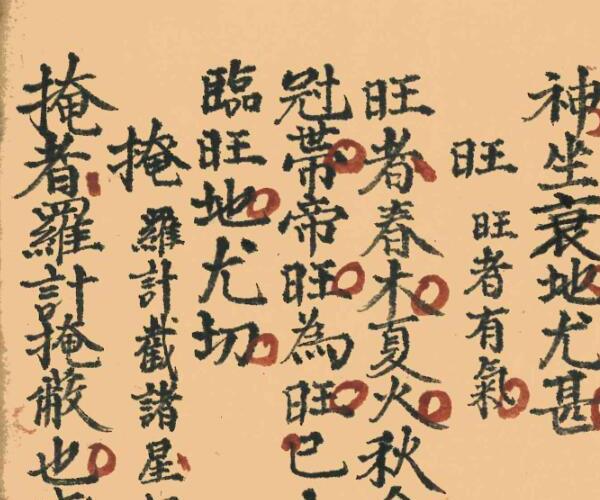 神坐衰地尤甚
旺 旺者有氣
旺者春木夏火秋
冠帶帝旺為旺巳
臨旺地尤切
掩 羅計截諸星
掩者羅計掩蔽也